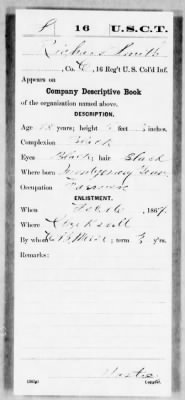 S 16 U.S.C.T.
Richard Smith
, Co. C, 16 Reg't U. S. Col'd Inf.
Appears on
Company Descriptive Book
of the organization named above.
DESCRIPTION.
Age 18 years; height feet inches.
Complexion Black
Eyes Black; hair Black
Where born Montgomery Tenn
Occupation Farmer
ENLISTMENT.
When Feb 6, 1864.
Where Clarksville
By whom; term 3 y'rs.
Remarks:
Copyist.